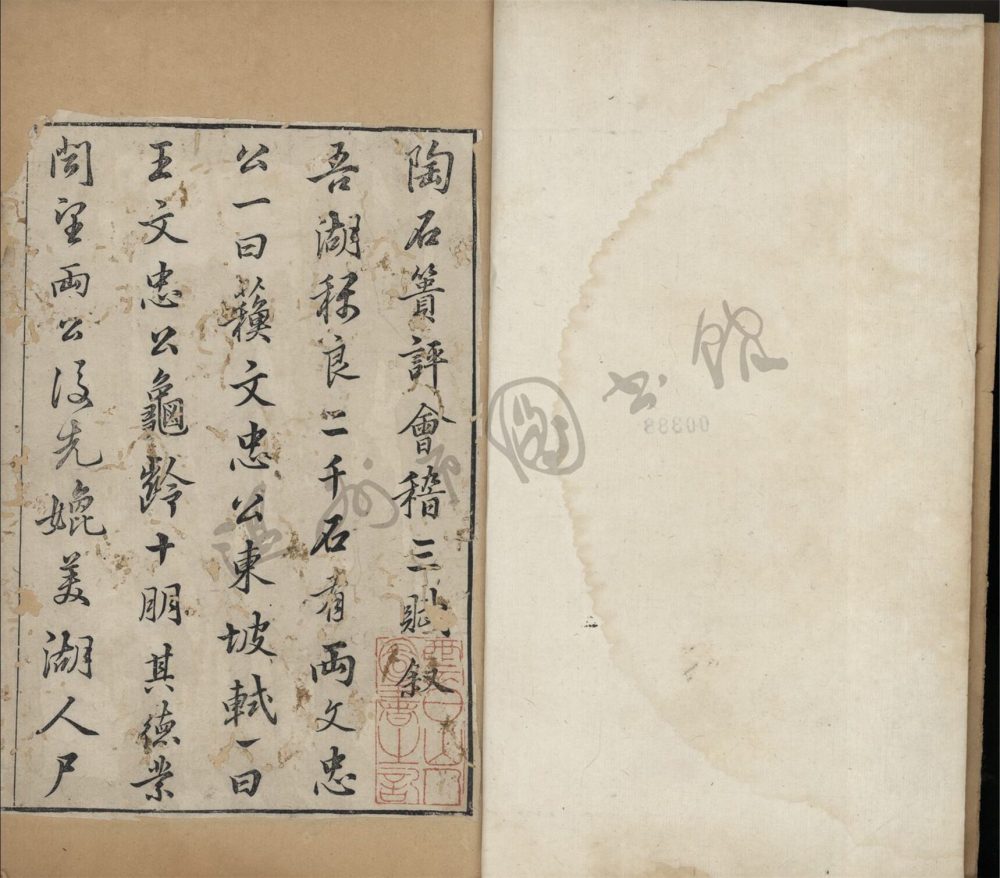 陶石簣評會稽三賦叙
吾湖稱良二千石有兩文忠
公一曰蘓文忠公東坡軾一曰
王文忠公龜齡十朋其德業
聞望兩公後先媲美湖人尸
温州市圖书館
00388